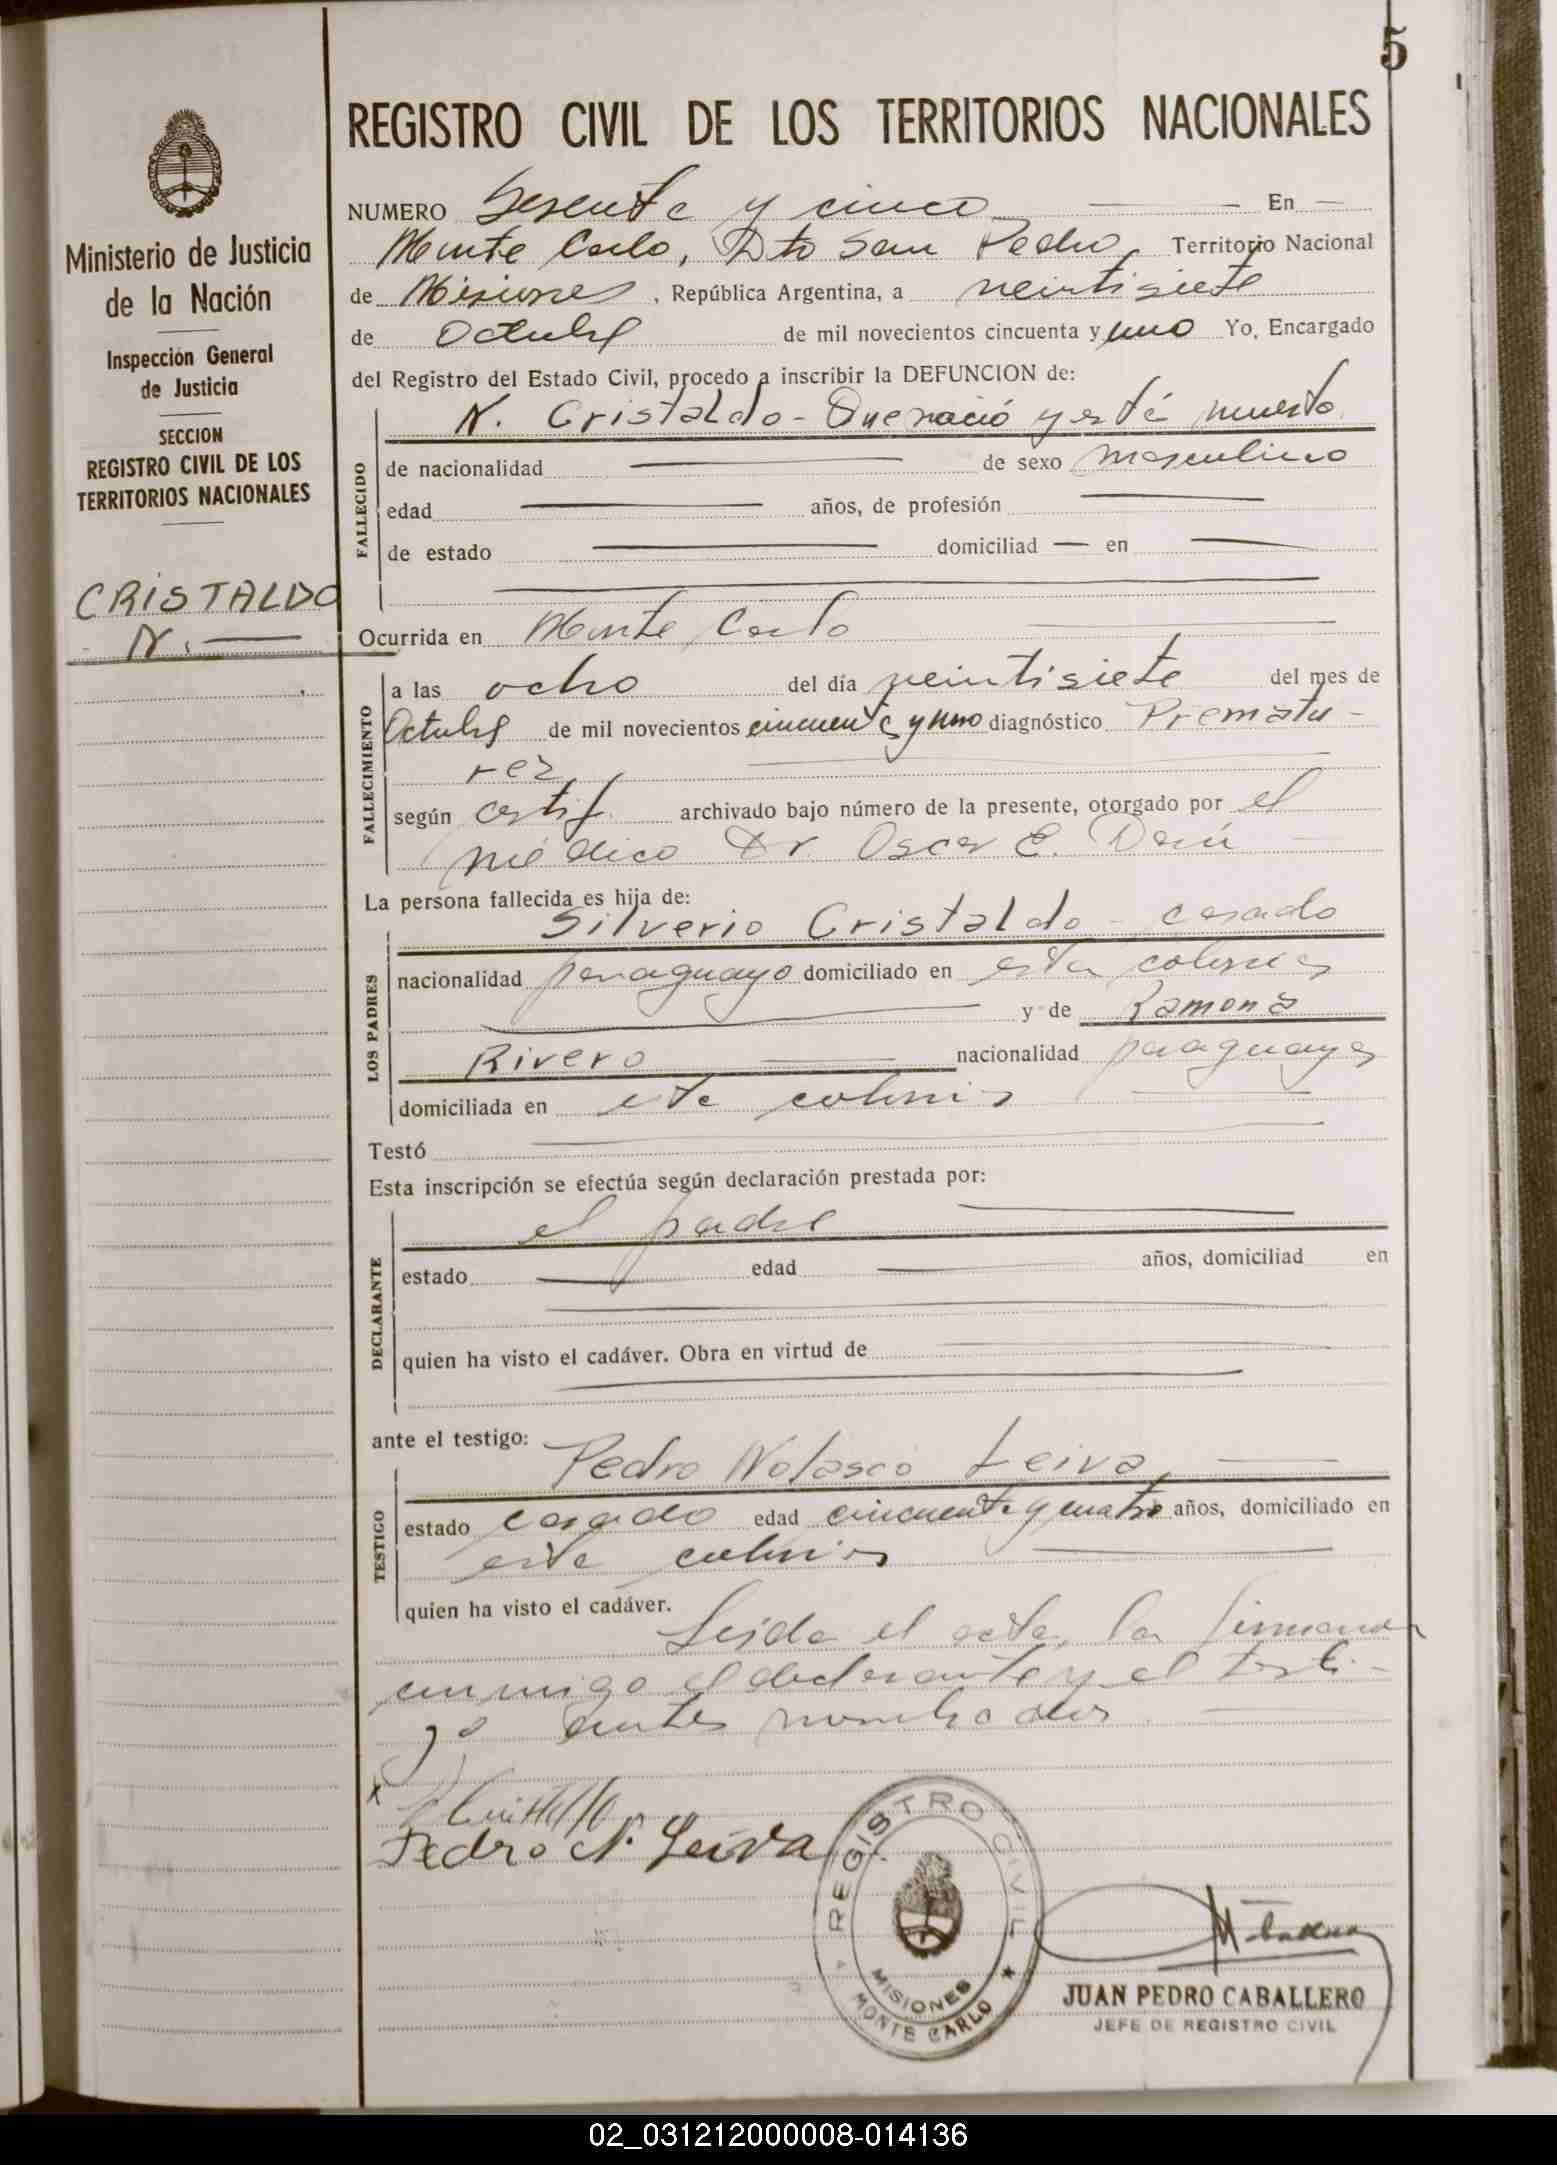 5
REGISTRO CIVIL DE LOS TERRITORIOS NACIONALES
Ministerio de Justicia
de la Nación
Inspección General
de Justicia
SECCION
REGISTRO CIVIL DE LOS
TERRITORIOS NACIONALES
CRISTALDO
N.
NUMERO Sesenta y cinco En
Monte Carlo, Dto San Pedro, Territorio Nacional
de Misiones, República Argentina, a veintisiete
de Octubre de mil novecientos cincuenta y uno Yo, Encargado
del Registro del Estado Civil, procedo a inscribir la DEFUNCION de:
FALLECIDO
N. Cristaldo - Que nació y está muerto
de nacionalidad de sexo masculino
edad años, de profesión
de estado domiciliad en
Ocurrida en Monte Carlo
FALLECIMIENTO
a las ocho del día veintisiete del mes de
Octubre de mil novecientos cincuenta y uno diagnóstico Prematu-
rez
según certif. archivado bajo número de la presente, otorgado por el
médico Dr. Oscar E.
La persona fallecida es hija de:
LOS PADRES
Silverio Cristaldo - casado
nacionalidad paraguayo domiciliado en esta colonia
y de Ramona
Rivero nacionalidad paraguaya
domiciliada en esta colonia
Testó
Esta inscripción se efectúa según declaración prestada por:
DECLARANTE
el padre
estado edad años, domiciliad en
quien ha visto el cadáver. Obra en virtud de
ante el testigo:
TESTIGO
Pedro Nolasco Leiva
estado casado edad cincuenta y cuatro años, domiciliado en
esta colonia
quien ha visto el cadáver. Leída el acta, la firman
conmigo el declarante y el testi-
go antes nombrados.
x S Cristaldo
Pedro N. Leiva
REGISTRO CIVIL
MISIONES
MONTE CARLO
JUAN PEDRO CABALLERO
JEFE DE REGISTRO CIVIL
02_031212000008-014136